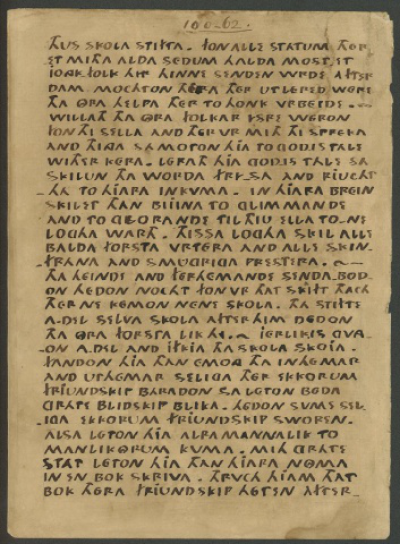 100-62.
THUS SKOLA STIFTA. FON ALLE STATUM THER
ET MITHA ALDA SEDUM HALDA MOST. ET
IOIK FOLK HIR HINNE SENDEN WRDE AFTER
DAM MOCHTON THERA THER UTLERED WERE
THA ORA HELPA THER TO HONK VRBEIDE. ~
WILLATH THA ORA FOLKAR VSRE WERON
FON THI SELLA AND THER VR MITH THI SPREKA
AND THIGA SA MOTON HIA TO GODIS TALE
WITHER KERA. LERATH HIA GODIS TALE SA
SKILUN THA WORDA FRY-SA AND RIUCHT
-HA TO HIARA INKVMA. IN HIARA BREIN
SKILET THAN BIJINA TO GLIMMANDE
AND TO GLORANDE TIL THIU ELLA TO-NE
LOGHA WARTH. THISSA LOGHA SKIL ALLE
BALDA FORSTA VRTERA AND ALLE SKIN-
FRANA AND SMUGRIGA PRESTERA. ~
THA HEINDE AND FERHEMANDE SENDA-BOD-
ON HEDON NOCHT FON VR THAT SKRIFT THACH
THER NE KEMON NENE SKOLA. THA STIFTE
A-DEL SELVA SKOLA AFTER HIM DEDON
THA ORA FORSTA LIK HE. ~ IERLIKIS GVNG-
ON A.DEL AND IFKIA THA SKOLA SKOIA.
FANDON HIA THAN EMONG THA INHEMAR
AND UTHEMAR SELIGA THER EKKORUM
FRIUNDSKIP BARADON SA LETON BEDA
GRATE BLIDSKIP BLIKA. HEDON SUME SEL-
IGA EKKORUM FRIUNDSKIP SWOREN.
ALSA LETON HIA ALRA MANNALIK TO
MANLIKORUM KVMA. MITH GRATE
STAT LETON HIA THAN HIARA NOMA
IN EN BOK SKRIVA. THRVCH HIAM THAT
BOK THERA FRIUNDSKIP HETEN AFTER